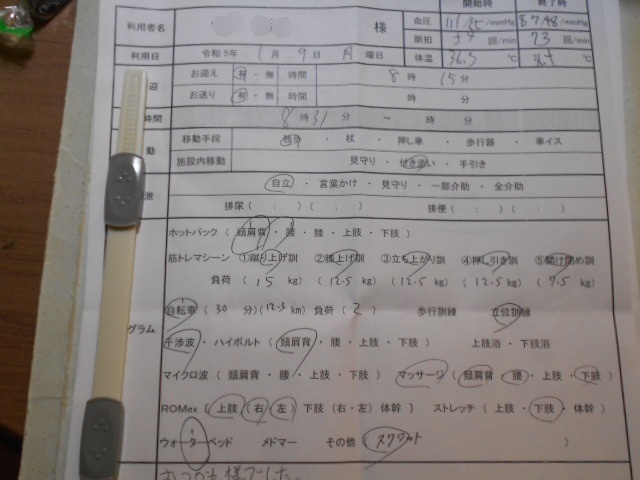 開始時 終了時
利用者名 様 血圧 /mmHg 87/48/mmHg
脈拍 54 回/min 73 回/min
利用日 令和5年 1月 9日 月 曜日 体温 36.3 ℃ ℃
迎 お迎え 有・無 時間 8時 15分
お送り 有・無 時間 時 分
時間 8時31分 ～ 時 分
動 移動手段 ・ 杖 ・ 押し車 ・ 歩行器 ・ 車イス
施設内移動 見守り ・ 付き添い ・ 手引き
泄 自立 ・ 言葉かけ ・ 見守り ・ 一部介助 ・ 全介助
排尿 ( : ) ( : ) 排便 ( : ) ( : )
ホットパック ( 頸肩背 ・ 腰 ・ 膝 ・ 上肢 ・ 下肢 )
筋トレマシーン ①蹴り上げ訓 ②膝上げ訓 ③立ち上がり訓 ④押し引き訓 ⑤開け閉め訓
負荷 ( 15 kg) ( 12.5 kg) ( 12.5 kg) ( 12.5 kg) ( 7.5 kg)
自転車 ( 30 分) (12.3 km) 負荷 ( 2 ) 歩行訓練 立位訓練
グラム 干渉波 ・ ハイボルト ( 頸肩背 ・ 腰 ・ 上肢 ・ 下肢 ) 上肢浴 ・ 下肢浴
マイクロ波 ( 頸肩背 ・ 腰 ・ 上肢 ・ 下肢 ) マッサージ ( 頸肩背 ・ 腰 ・ 上肢 ・ 下肢 )
ROMex [ 上肢 (右・左) 下肢 (右・左) 体幹 ] ストレッチ ( 上肢 ・ 下肢 ・ 体幹 )
ウォーターベッド メドマー その他 ( スクワット )
様でした。